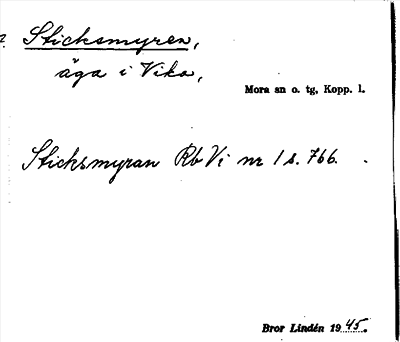 Sticksmyren,
äga i Vika,
Mora sn o. tg, Kopp. l.
Sticksmyran Rb Vi nr 1 s. 766.
Bror Lindén 1945.